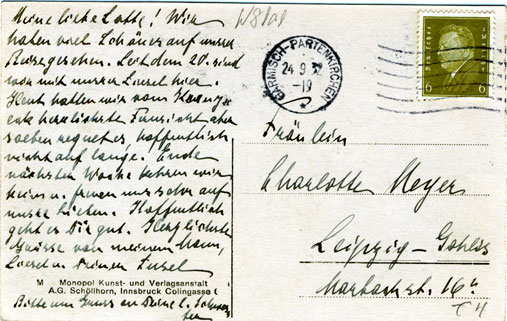 Meine liebe Lotte! Wir
haben viel Schönes auf unserer
Reise gesehen. Seit dem 20. sind
wir mit unserer Liesel hier.
Heut hatten wir vom
aus herrlichste Fernsicht aber
soeben regnet es, hoffentlich
nicht auf lange. Ende
nächster Woche kehren wir
heim u. freuen uns sehr auf
unsre Lieben. Hoffentlich
geht es Dir gut. Herzlichste
Grüsse von meinem Mann,
Liesel u. Deinen
M Monopol Kunst- und Verlagsanstalt
A.G. Schöllhorn, Innsbruck Colingasse
Bitte um Gruss an Deine l.
GARMISCH-PARTENKIRCHEN
24.9.32
-19
6 6
Fräulein
Charlotte Meyer
Leipzig-Gohlis
16